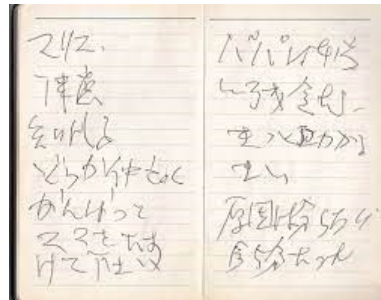 マリコ.
津慶
知代子
どうか仲よく
がんばって
ママをたす
けて下さい
パパは本当
に残念だ.
きっと助かる
まい
原因は分らない
今5分たった